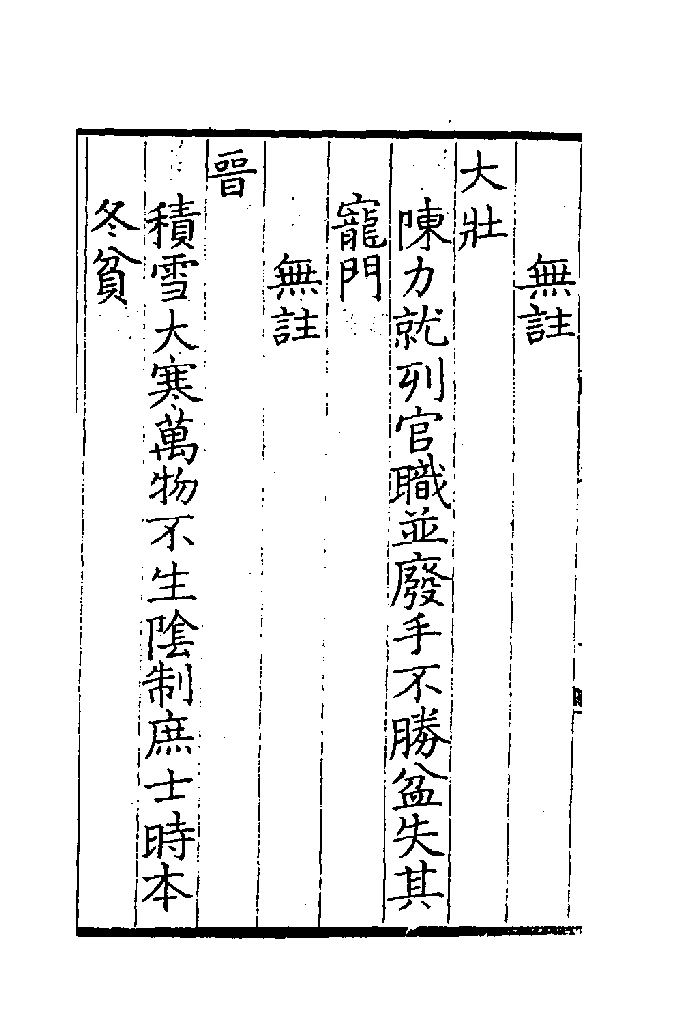 無註
大壯
陳力就列官職並廢手不勝盆失其
寵門
無註
晉
積雪大寒萬物不生陰制庶士時本
冬貧